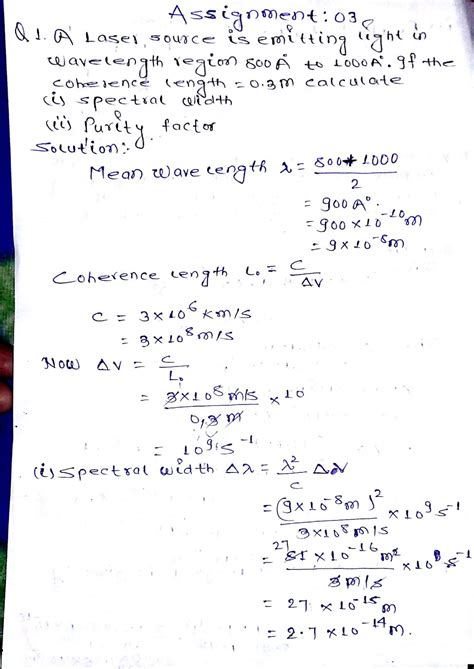 Assignment: 03
Q1. A Laser source is emitting light in
wavelength region 800 Å to 1000 Å. If the
coherence length = 0.3m calculate
(i) spectral width
(ii) Purity factor
Solution:-
Mean Wave length λ = 800+1000
2
= 900 A°.
= 900 × 10⁻¹⁰ m
= 9×10⁻⁸m
Coherence length L₀ = C
Δν
C = 3×10⁶ Km/s
= 3×10⁸ m/s
Now Δν = C
L₀
= 3×10⁸ m/s × 10
0.3 m
= 10⁹ s⁻¹
(i) Spectral width Δλ = λ² Δν
C
= (9×10⁻⁸m)² × 10⁹ s⁻¹
3×10⁸ m/s
= 27 81 × 10⁻¹⁶ m² × 10 s⁻¹
3 m/s
= 27 × 10⁻¹⁵ m
= 2.7 × 10⁻¹⁴ m.